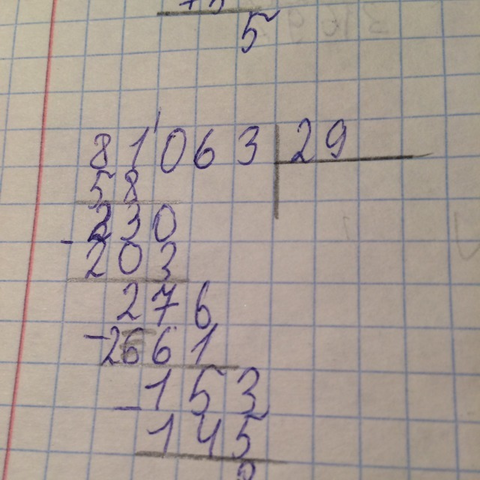 5
81063 29
58
230
- 203
276
- 2661
153
- 145
8